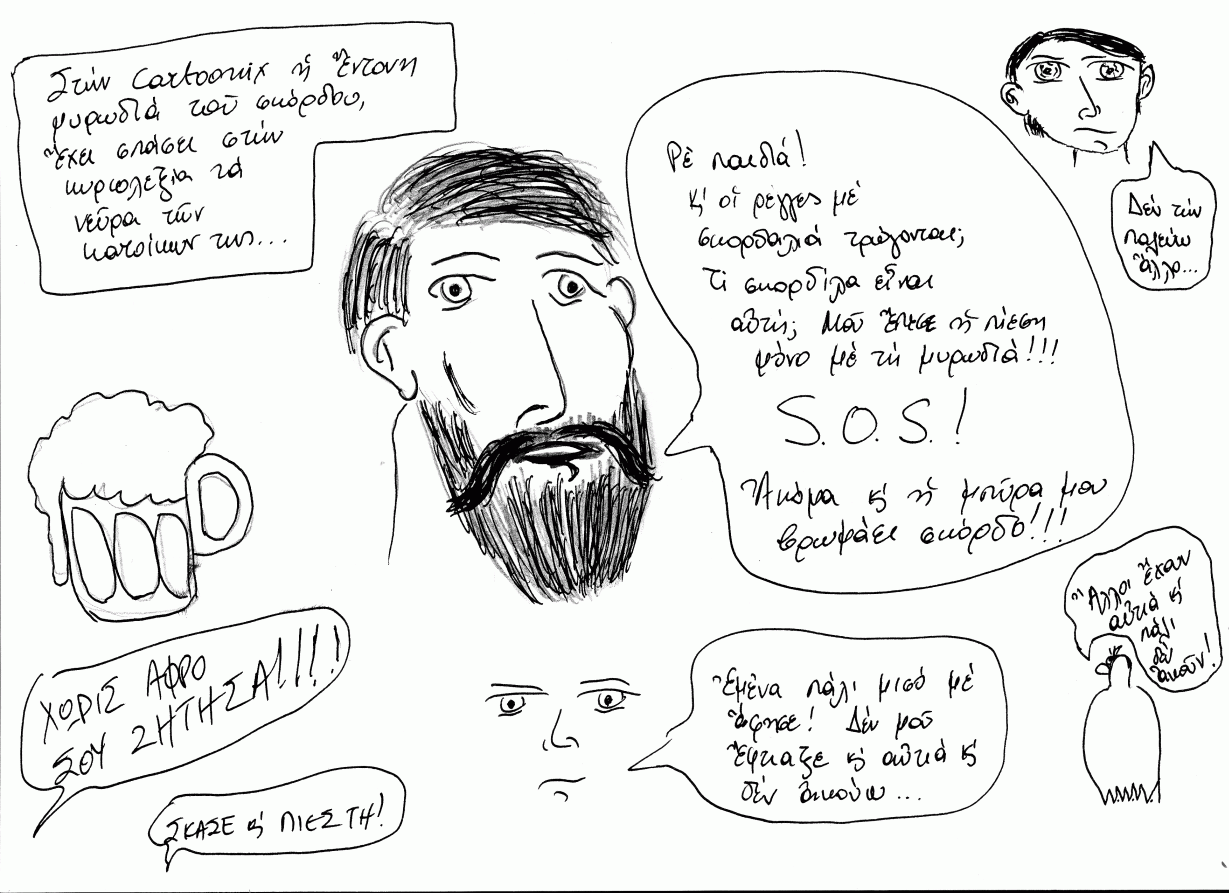 Στήν Cartoonix ἡ ἔντονη
μυρωδιά τοῦ σκόρδου,
ἔχει σπάσει στήν
κυριολεξία τά
νεῦρα τῶν
κατοίκων της...
Ρέ παιδιά!
κ' οἱ ρέγγες μέ
σκορδαλιά τρώγονται;
Τί σκορδίλα εἶναι
αὐτή; Μοῦ ἔπεσε ἡ πίεση
μόνο μέ τή μυρωδιά!!!
S.O.S.!
Ἀκόμα κ' ἡ μπύρα μου
βρωμάει σκόρδο!!!
Δέν τήν
παλεύω
ἄλλο...
ΧΩΡΙΣ ΑΦΡΟ
ΣΟΥ ΖΗΤΗΣΑ!!!!
ΣΚΑΣΕ κ' ΠΙΕΣ ΤΗ!
Ἐμένα πάλι μισό μέ
ἄφησε! Δέν μοῦ
ἔφτιαξε κ' αὐτιά κ'
δέν ἀκούω...
Ἄλλοι ἔχουν
αὐτιά κ'
πάλι
δέν
ἀκοῦν!